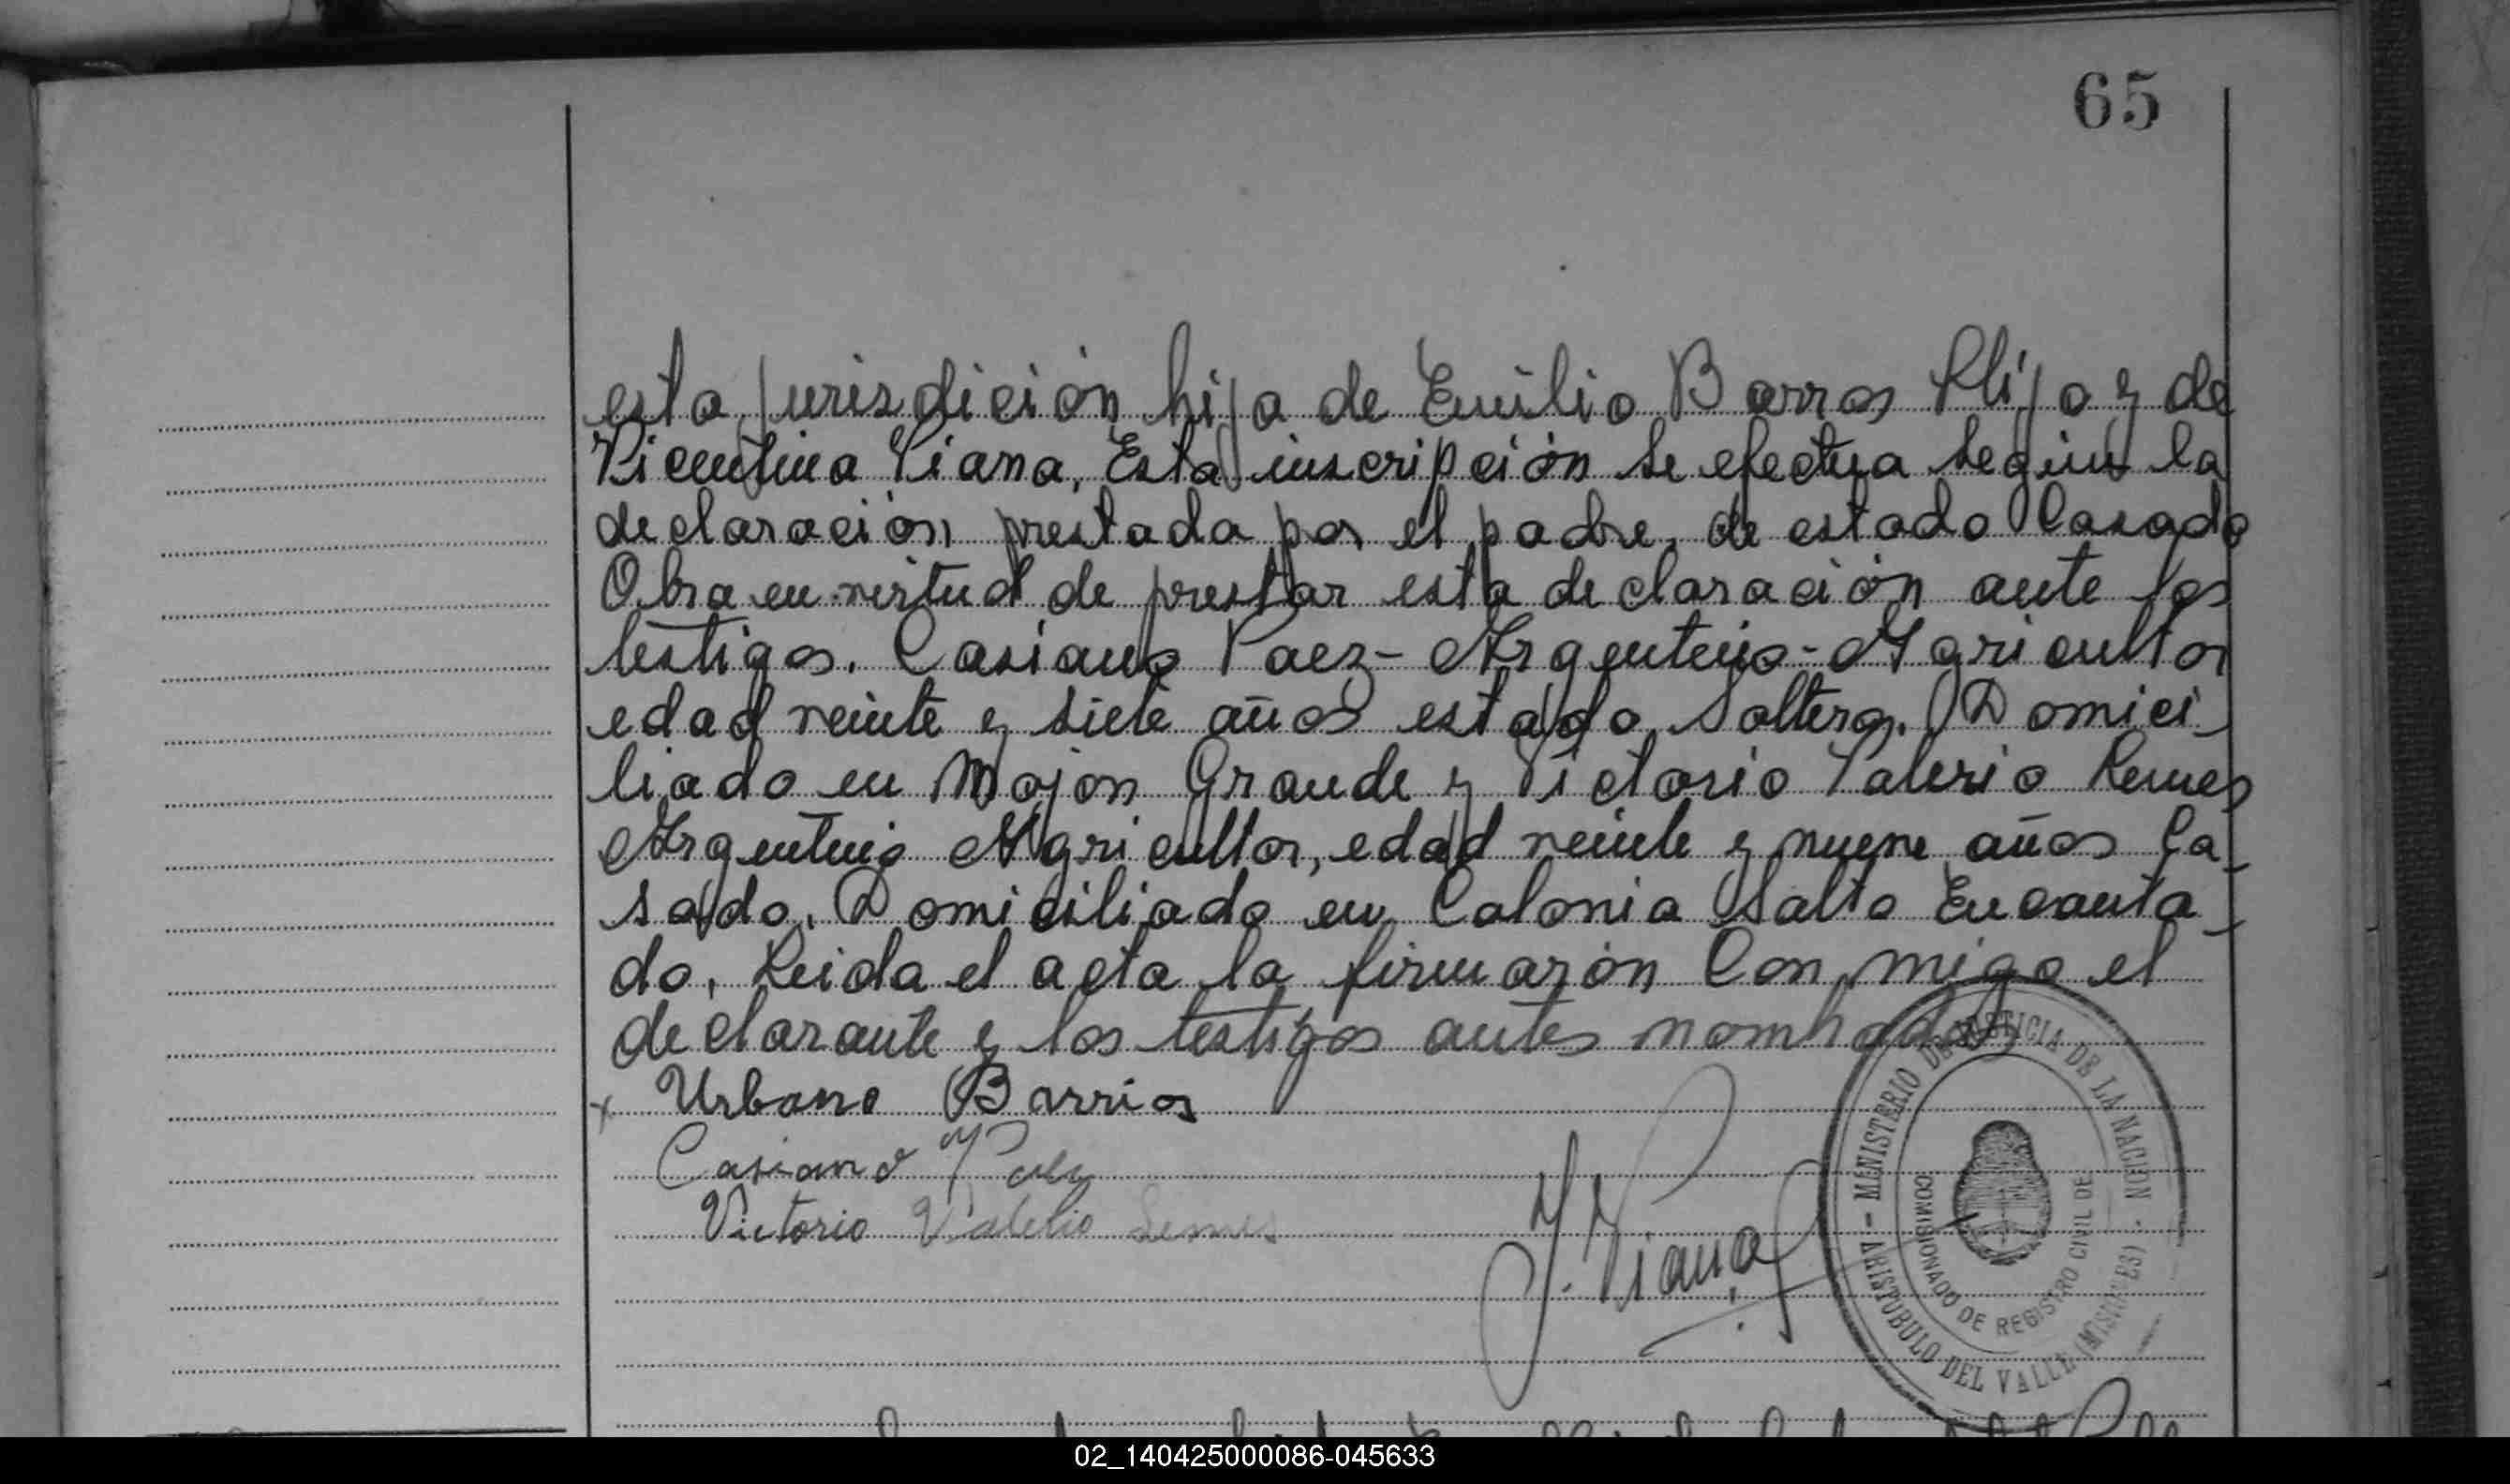 65
esta jurisdición hija de Emilio Barros Hijo y de
Vicentina Viana, Esta inscripción se efectua según la
declaración prestada por el padre, de estado Casado
Obra en virtud de prestar esta declaración ante los
testigos. Casiano Paez - Argentino - Agricultor
edad veinte y siete años estado Soltero. Domici-
liado en Mojon Grande y Victorio Valerio Lemes
Argentino Agricultor, edad veinte y nueve años Ca-
sado, Domiciliado en Colonia Salto Encanta-
do, Leida el acta la firmarón Con migo el
declarante y los testigos antes nombrados
x Urbano Barrios
Casiano Paez
Victorio Valerio Lemes
J. Viana
MINISTERIO DE JUSTICIA DE LA NACION - ARISTOBULO DEL VALLE (MISIONES) -
COMISIONADO DE REGISTRO CIVIL DE
02_140425000086-045633